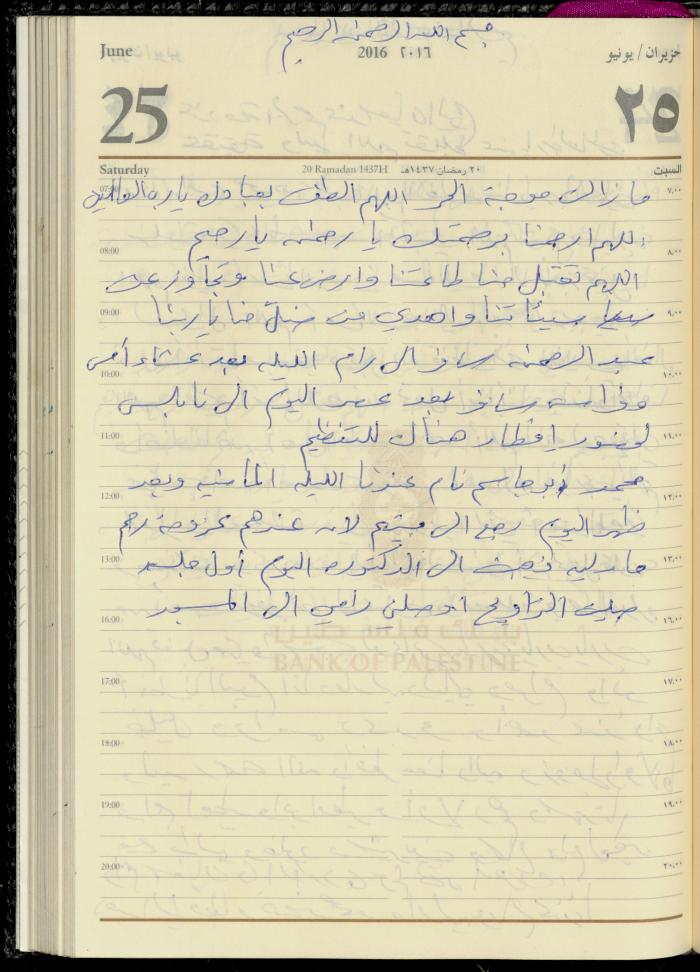 بسم الله الرحمن الرحيم
June
2016 ٢٠١٦
حزيران / يونيو
25
٢٥
Saturday
20 Ramadan 1437H ٢٠ رمضان ١٤٣٧هـ
السبت
07:00 ما زالت موجة الحر اللهم الطف بعبادك يا رب العالمين ٧:٠٠
اللهم ارحمنا برحمتك يا رحمن يا رحيم
08:00 ٨:٠٠
اللهم تقبل منا طاعتنا وارض عنا وتجاوز عن
09:00 سيئاتنا واهدي من ضل منا يا ربنا ٩:٠٠
عبد الرحمن سافر الى رام الليله بعد عشاء أمس
10:00 ١٠:٠٠
سافر بعد عصر اليوم الى نابلس
11:00 لحضور إفطار هناك للتنظيم ١١:٠٠
محمد أبو جاسم نام عندنا الليله الماضيه وبعد
12:00 ١٢:٠٠
ظهر اليوم رجع الى لان عندهم عزومة رحم
13:00 مادلين ذهبت الى الدكتوره اليوم أول جلسه ١٣:٠٠
صليت التراويح اوصلني رامي الى المسجد
16:00 ١٦:٠٠
بنك فلسطين
BANK OF PALESTINE
17:00 ١٧:٠٠
18:00 ١٨:٠٠
19:00 ١٩:٠٠
20:00 ٢٠:٠٠